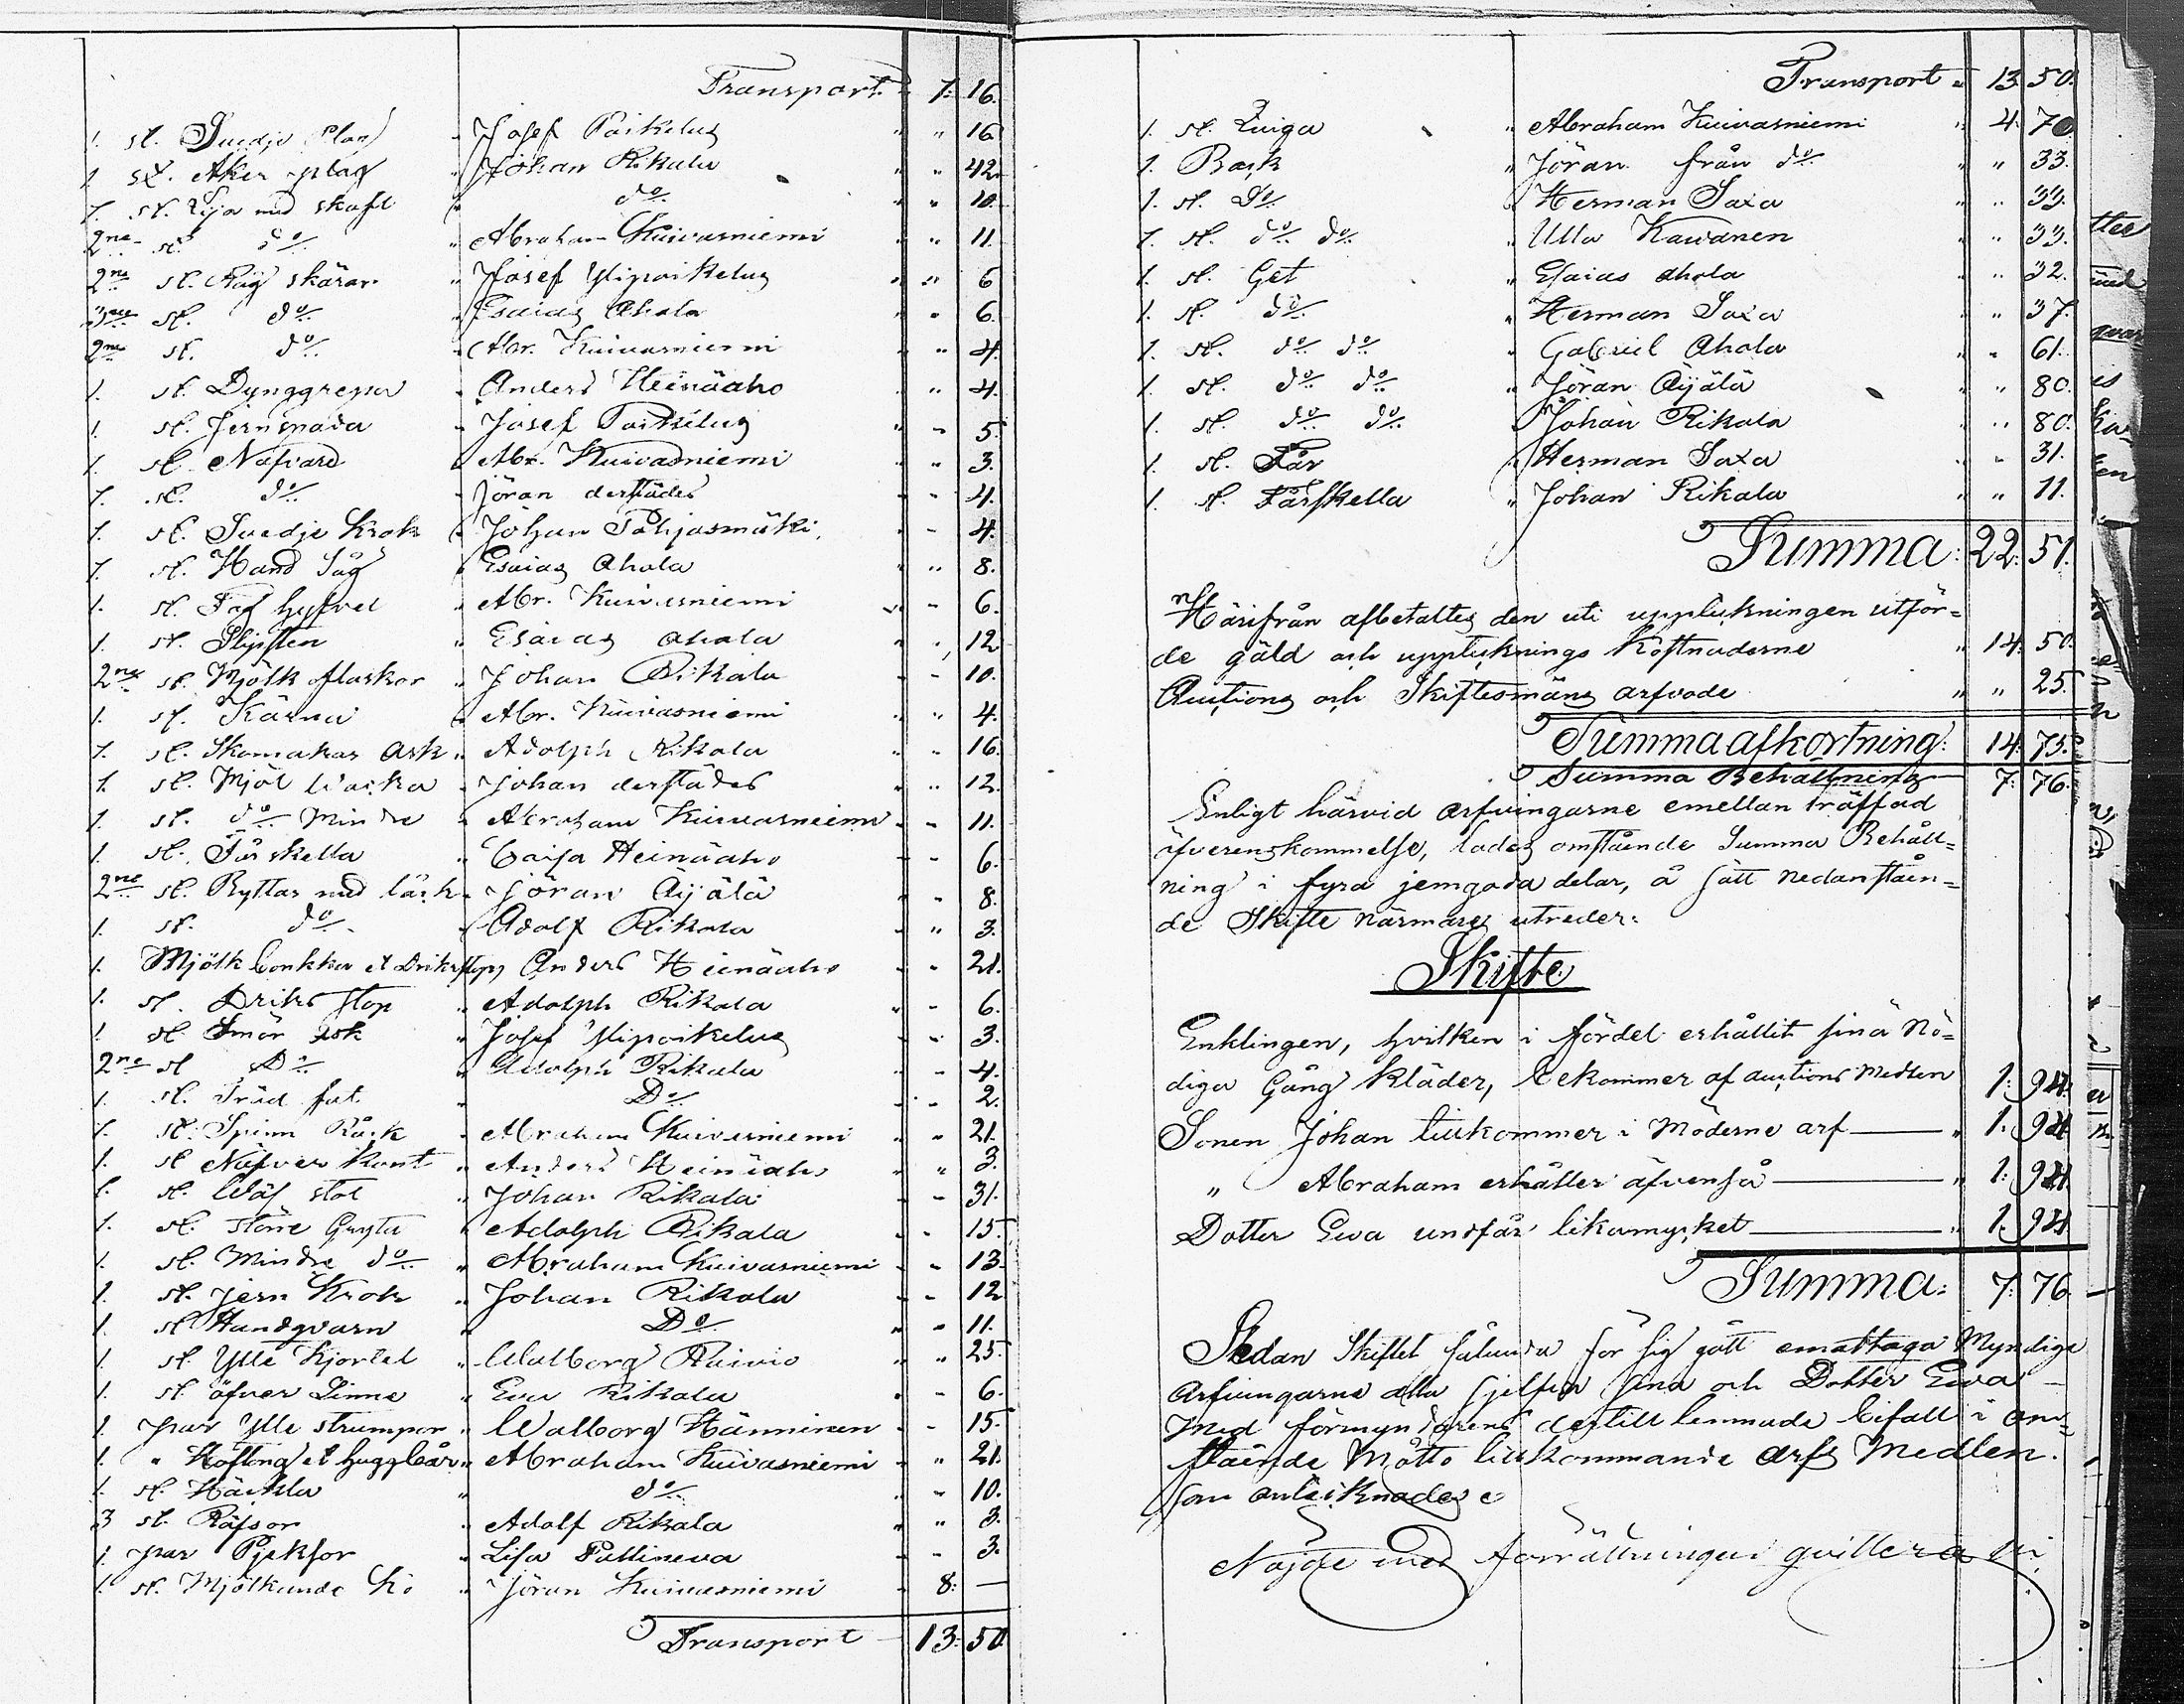 Transport 7: 16.
1. st. Svedje Plog " Josef Paikelus " " 16
1 st. Åker plog " Johan Rikala " " 42.
1. st. Lija med skaft " do " " 10.
2ne st. do " Abraham Kuivasniemi " " 11.
2ne st. Råg skäror " Josef Ylipaikelus " " 6
3ne st. do " Esaias Ahola " " 6.
2ne st. do " Abr. Kuivasniemi " " 4.
1. st. Dynggrepa " Anders Heinäaho " " 4.
1. st. Jernspada " Josef Paikelus " " 5.
1. st. Nafvare " Abr. Kuivasniemi " " 3.
1. st. do " Jöran derstädes " " 4.
1. st. Svedje Krok " Johan Pohjasmäki " " 4.
1. st. Hand Såg " Esaias Ahola " " 8.
1. st. hyfvel " Abr. Kuivasniemi " " 6.
1. st. Slipsten " Esaias Ahola " " 12
2ne st. Mjölk flaskor " Johan Rikala " " 10.
1. st. Kärna " Abr. Kuivasniemi " " 4.
1. st. Skomakar Ask " Adolph Rikala " " 16.
1. st. Mjöl Backa " Johan derstädes " " 12.
1. st. do Mindre " Abraham Kuivasniemi " " 11.
1. st. Fårskella " Caisa Heinäaho " " 6.
2ne st. Byttor med läck " Jöran Äijälä " " 8.
1. st. do " Adolf Rikala " " 3.
1. Mjölk bonkka et Drikstop, Anders Heinäaho " " 21.
1. st. Driks stop " Adolph Rikala " " 6.
1 st. Smör ask " Josef Ylipaikelus " " 3.
2ne st Do " Adolph Rikala " " 4.
1. st. Träd fat " Do " " 2.
1. st. Spinn Råck " Abraham Kuivasniemi " " 21.
1. st Näfver Kont " Anders Heinäaho " " 3.
1. st. Wäf stol " Johan Rikala " " 31.
1. st. större Gryta " Adolph Rikala " " 15.
1. st. Mindre do " Abraham Kuivasniemi " " 13.
1. st. jern Krok " Johan Rikala " " 12
1. st Handqvarn " Do " " 11.
1. st. Ylle Kjortel " Walborg Raivio " " 25.
1. st. öfver Linne " Ewa Rikala " " 6.
1. par Ylle strumpor " Walborg Hänninen " " 15.
1. " Höfting et huggbår " Abraham Kuivasniemi " " 21.
1. st. Häckla " do " " 10.
3 st. Räfsor " Adolf Rikala " " 3.
1. par Pjeksor " Lisa Pallineva " " 3.
1. st. Mjölkande Ko " Jöran Kuivasniemi " 8: —
Transport — 13: 50
Transport " 13. 50.
1. st. Quiga " Abraham Kuivasniemi " 4. 70
1. Bock " Jöran från do " " 33.
1. st. Do " Herman Saxa " " 33.
1. st. do do " Ulla Kawanen " " 33.
1. st. Get " Esaias ahola " " 32.
1. st. do " Herman Saxa " " 37.
1. st. do do " Gabriel Ahola " " 61.
1. st. do do " Jöran Äijälä " " 80.
1. st. do do " Johan Rikala " " 80.
1. st. Får " Herman Saxa " " 31.
1. st. Fårskella " Johan Rikala " " 11.
Summa: 22: 51.
Härifrån afbetaltes den uti uppteckningen utför=
de gäld och upptecknings Kostnaderne " 14. 50.
Auctions och Skiftesmäns arfvode " " 25.
Summa afkortning: 14: 75.
Summa Behållning 7: 76.
Enligt härvid arfvingarne emellan träffad
öfverenskommelse, lades omstående Summa Behåll=
ning i fyra jemgoda delar, å sätt nedanståen=
de Skifte närmare utreder:
Skifte
Enklingen, hvilken i fördel erhållit sina Nö=
diga Gång Kläder, bekommer af auctions Medlen 1: 94.
Sonen Johan tillkommer i Möderne arf — " 1. 94
" Abraham erhåller äfvenså — " 1: 94.
Dotter Ewa undfår lika mycket — " 1. 94
Summa: 7: 76. —
Sedan Skiftet sålunda för sig gått emottaga Myndige
Arfvingarne alla sjelfva sina och Dotter Ewa —
med förmyndarens dertill lemnade bifall i om=
stående Måtto tillkommande arfs Medlen.
som antecknades
Nöjde med förrättningen qvittera vi